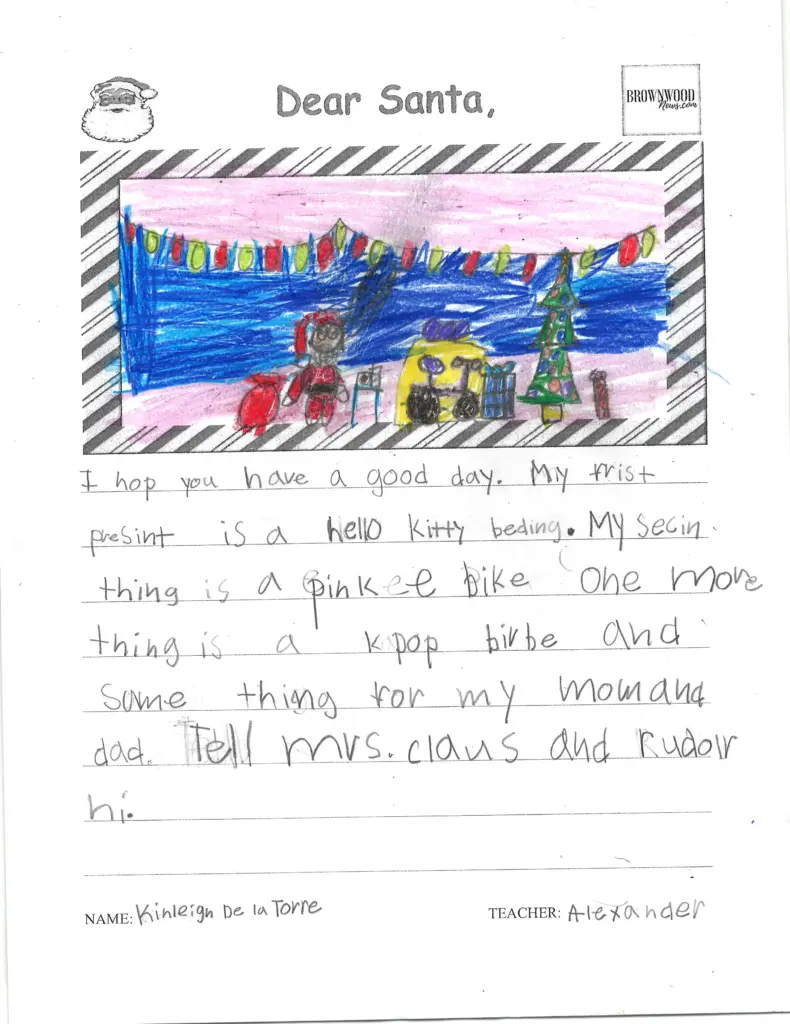 Dear Santa,
BROWNWOOD
News.com
I hop you have a good day. My frist
presint is a hello kitty beding. My secin
thing is a pinkee bike one more
thing is a kpop birbe and
some thing for my mom and
dad. Tell mrs. claus and Rudolr
hi.
NAME: Kinleigh De la Torre
TEACHER: Alexander